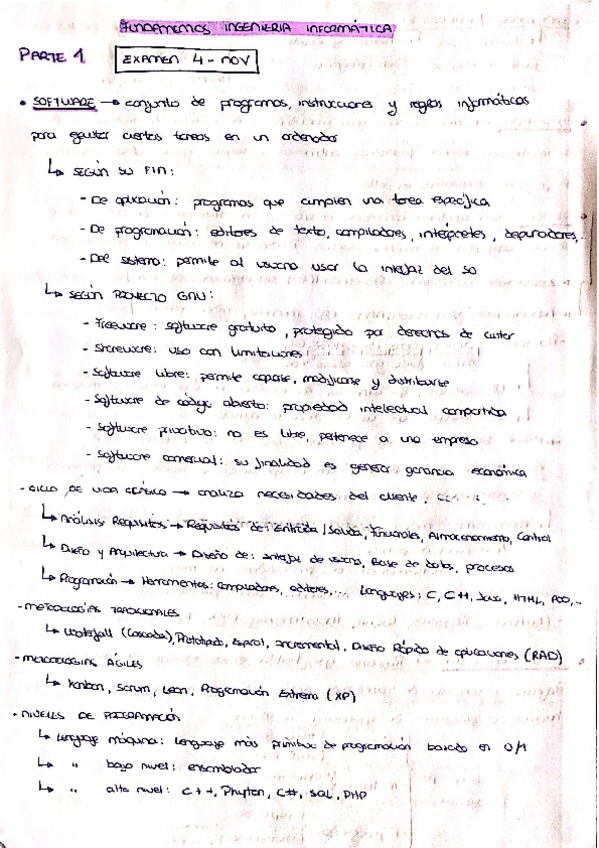 FUNDAMENTOS INGENIERIA INFORMÁTICA
PARTE 1 EXAMEN 4-NOV
• SOFTWARE → conjunto de programas, instrucciones y reglas informáticas
para ejecutar ciertas tareas en un ordenador
↳ SEGÚN SU FIN:
- De aplicación: programas que cumplen una tarea específica
- De programación: editores de texto, compiladores, intérpretes, depuradores,..
- Del sistema: permite al usuario usar la interfaz del SO
↳ SEGÚN PROYECTO GNU:
- Freeware: software gratuito, protegido por derechos de autor
- Shareware: uso con limitaciones
- Software libre: permite copiarse, modificarse y distribuirse
- Software de código abierto: propiedad intelectual compartida
- Software privativo: no es libre, pertenece a una empresa
- Software comercial: su finalidad es generar ganancia económica
- CICLO DE VIDA GENÉRICO → analiza necesidades del cliente.
↳ Análisis Requisitos → Requisitos de: Entrada/Salida, Funcionales, Almacenamiento, Control
↳ Diseño y Arquitectura → Diseño de: interfaz de usuario, Base de datos, procesos
↳ Programación → Herramientas: compiladores, editores,... Lenguajes: C, C++, Java, HTML, POO,..
- METODOLOGÍAS TRADICIONALES
↳ Waterfall (Cascada), Prototipado, Espiral, Incremental, Diseño Rápido de aplicaciones (RAD)
- METODOLOGÍAS ÁGILES
↳ Kanban, Scrum, Lean, Programación Extrema (XP)
- NIVELES DE PROGRAMACIÓN
↳ Lenguaje máquina: lenguaje más primitivo de programación basado en 0/1
↳ " bajo nivel: ensamblador
↳ " alto nivel: C++, Phyton, C#, SQL, PHP